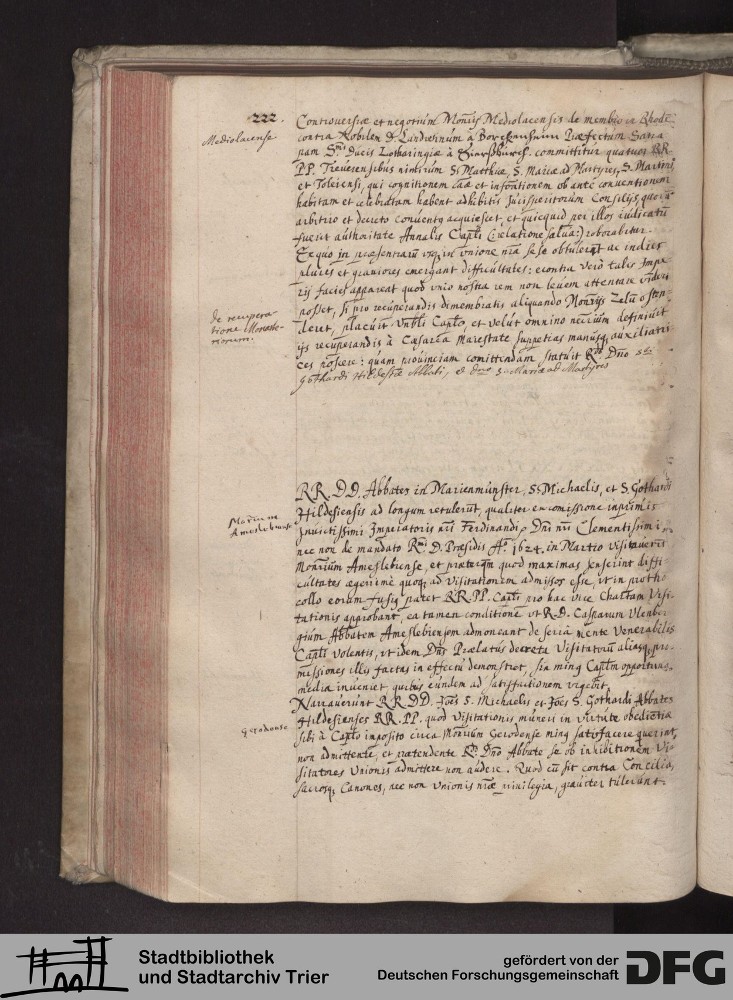 222.
Mediolacense
Controversiae et negotium Monrÿs Mediolacensis de membro in Rhode
contra Nobilem D. Landvinum à Præfectum
Smi Ducis Lotharingiæ à committitur quatuor RR
PP. Treverensibus nimirum S. Matthiæ, S. Mariæ ad Martyres, S. Martini
et Toleiensi, qui cognitionem et ob ante conventionem
habitam et celebratam habent adhibitis Jurisperitorum Consilÿs, quorū
arbitrio et decreto conventg acquiescet, et quicquid per illos iudicatū
fuerit authoritate Annalis Capli (: relatione salua:) roborabitur.
Ex quo in præsentiarū in Vnione nrā se se obtulerūt ac indies
plures et graviores emergant difficultates: econtra Vero talis Impe
rij facies appareat quod Vnio nostra rem non leuem attentare videri
de recupera
tione Monaste-
riorum.
posset, si pro recuperandis dimembratis aliquando Monrÿs Zelū osten
deret, placuit Vnbli Caplo, et velut omnino necriūm definiuit
ijs recuperandis à Cæsarea Maiestate suppetias manusq auxiliatri-
ces poscere: quam prouinciam comittendam statuit Rdo Dno sti
Gothardi Hildesiæ Abbati, et dno S. Mariæ ad Martyres
RR. DD. Abbates in Marienmünster, S. Michaelis, et S. Gothardi
Hildesiensis ad longum retulerūt, qualiter ex comissione inprimis
Ameslebiense
Inuictissimi Imperatoris nri Ferdinandi 2 Dni nri Clementissimi,
nec non de mandato Rmi D. Præsidis Ao 1624. in Martio Visitauerīt
Monrium Ameslebiense, et præterqm quod maximas senserint diffi
cultates ægerrime quoq ad Visitationem admissos esse, vt in protho
collo eorum fusig patet RR. PP. Capli pro hac vice Chartam Visi
tationis approbant, ea tamen conditione vt R.D. Casparum Vlenber
gium Abbatem Ameslebiensem admoneant de seria mente Venerabilis
Capli volentis, vt idem Dns Prælatus decreta Visitatorū aliasq pro-
missiones illis factas in effectu demonstret, sin ming Caplm opportuna
media inueniet quibus eundem ad satisfactionem vrgebit.
Narrauerunt RR. DD. Joēs S. Michaelis et Joēs S. Gothardi Abbates
Gerodense
Hildesienses RR. PP. quod Visitationis muneri in virtute obedientiæ
sibi à Caplo imposito circa Monrium Gerodense ming satisfacere querint,
non admittente, et prætendente Rdo Dno Abbate se ob inhibitionem Vi
sitatores Vnionis admittere non audere. Quod cū sit contra Concilia,
sacrosq Canones, nec non Vnionis nræ priuilegia, grauiter tulerunt
Stadtbibliothek
und Stadtarchiv Trier
gefördert von der
Deutschen Forschungsgemeinschaft
DFG